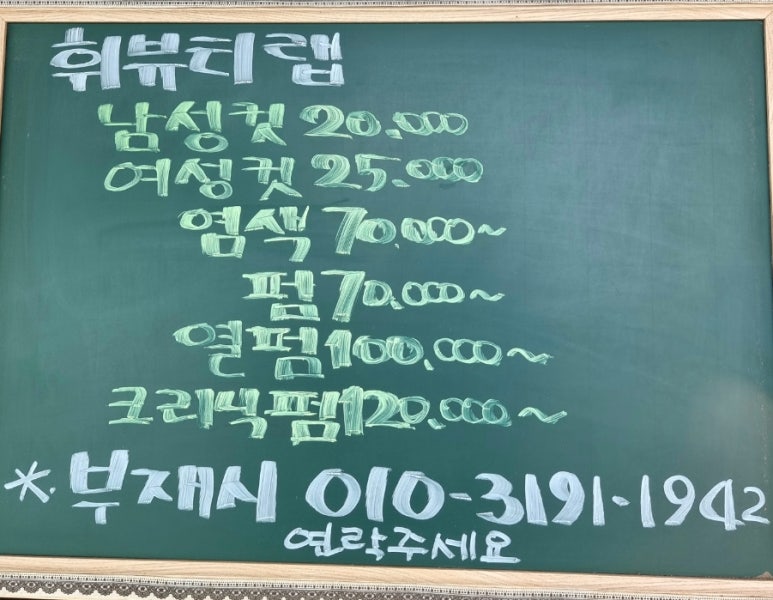 휘뷰티랩
남성컷 20.000
여성컷 25.000
염색 70.000~
펌 70.000~
열펌 100.000~
크리닉펌 120.000~
*. 부재시 010-3191-1942
연락주세요